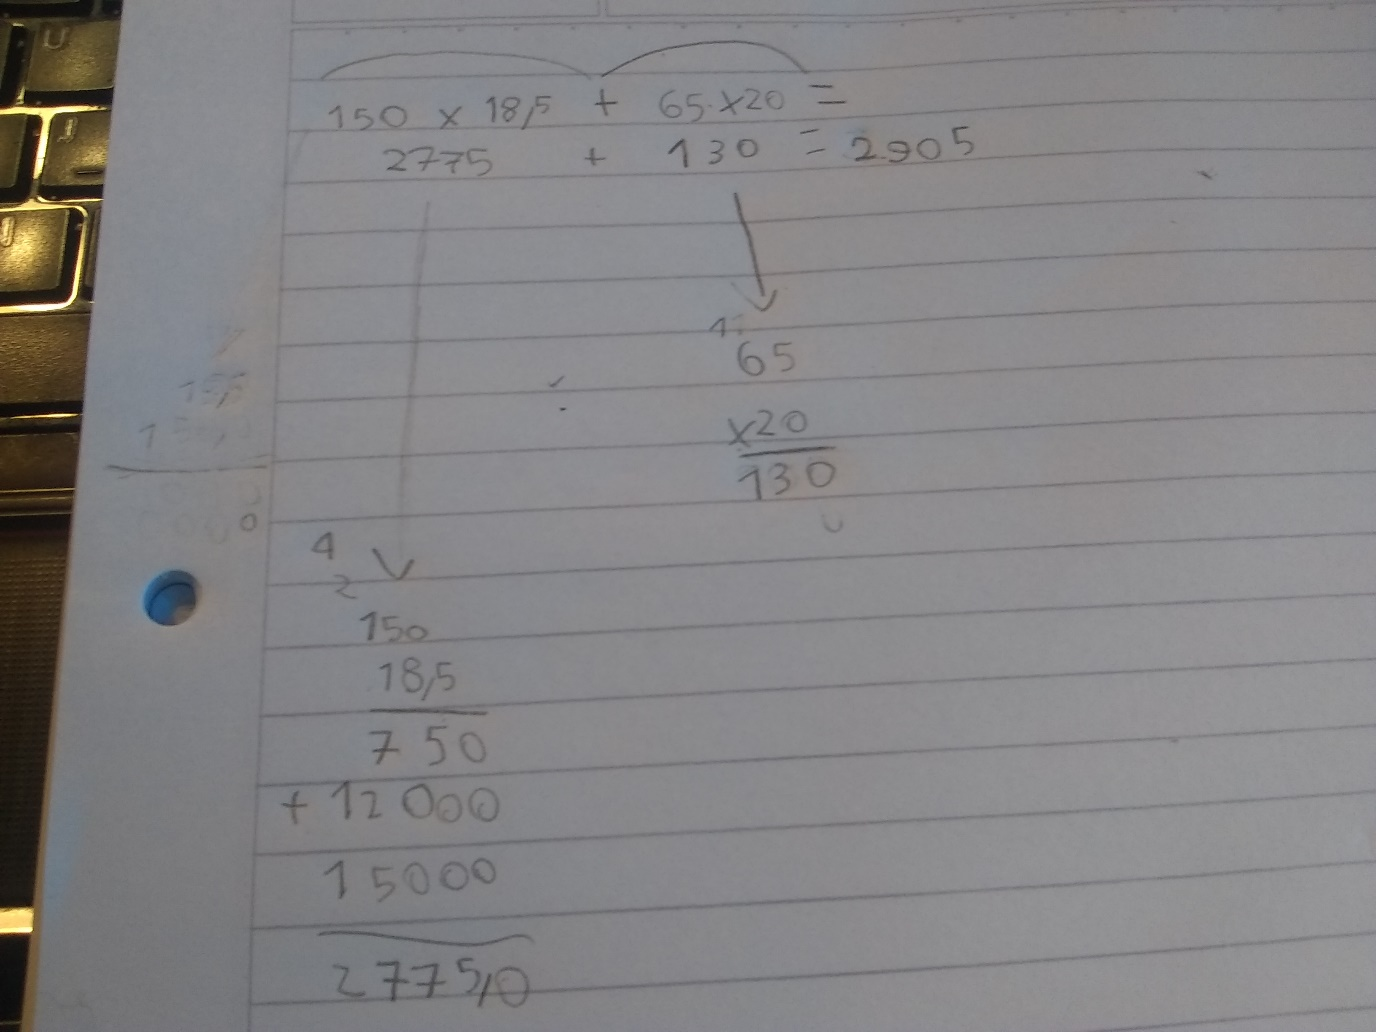 150 x 18,5 + 65 x 20 =
2775 + 130 = 2905
1
65
x20
130
4
2
150
18,5
750
+ 12000
15000
2775,0